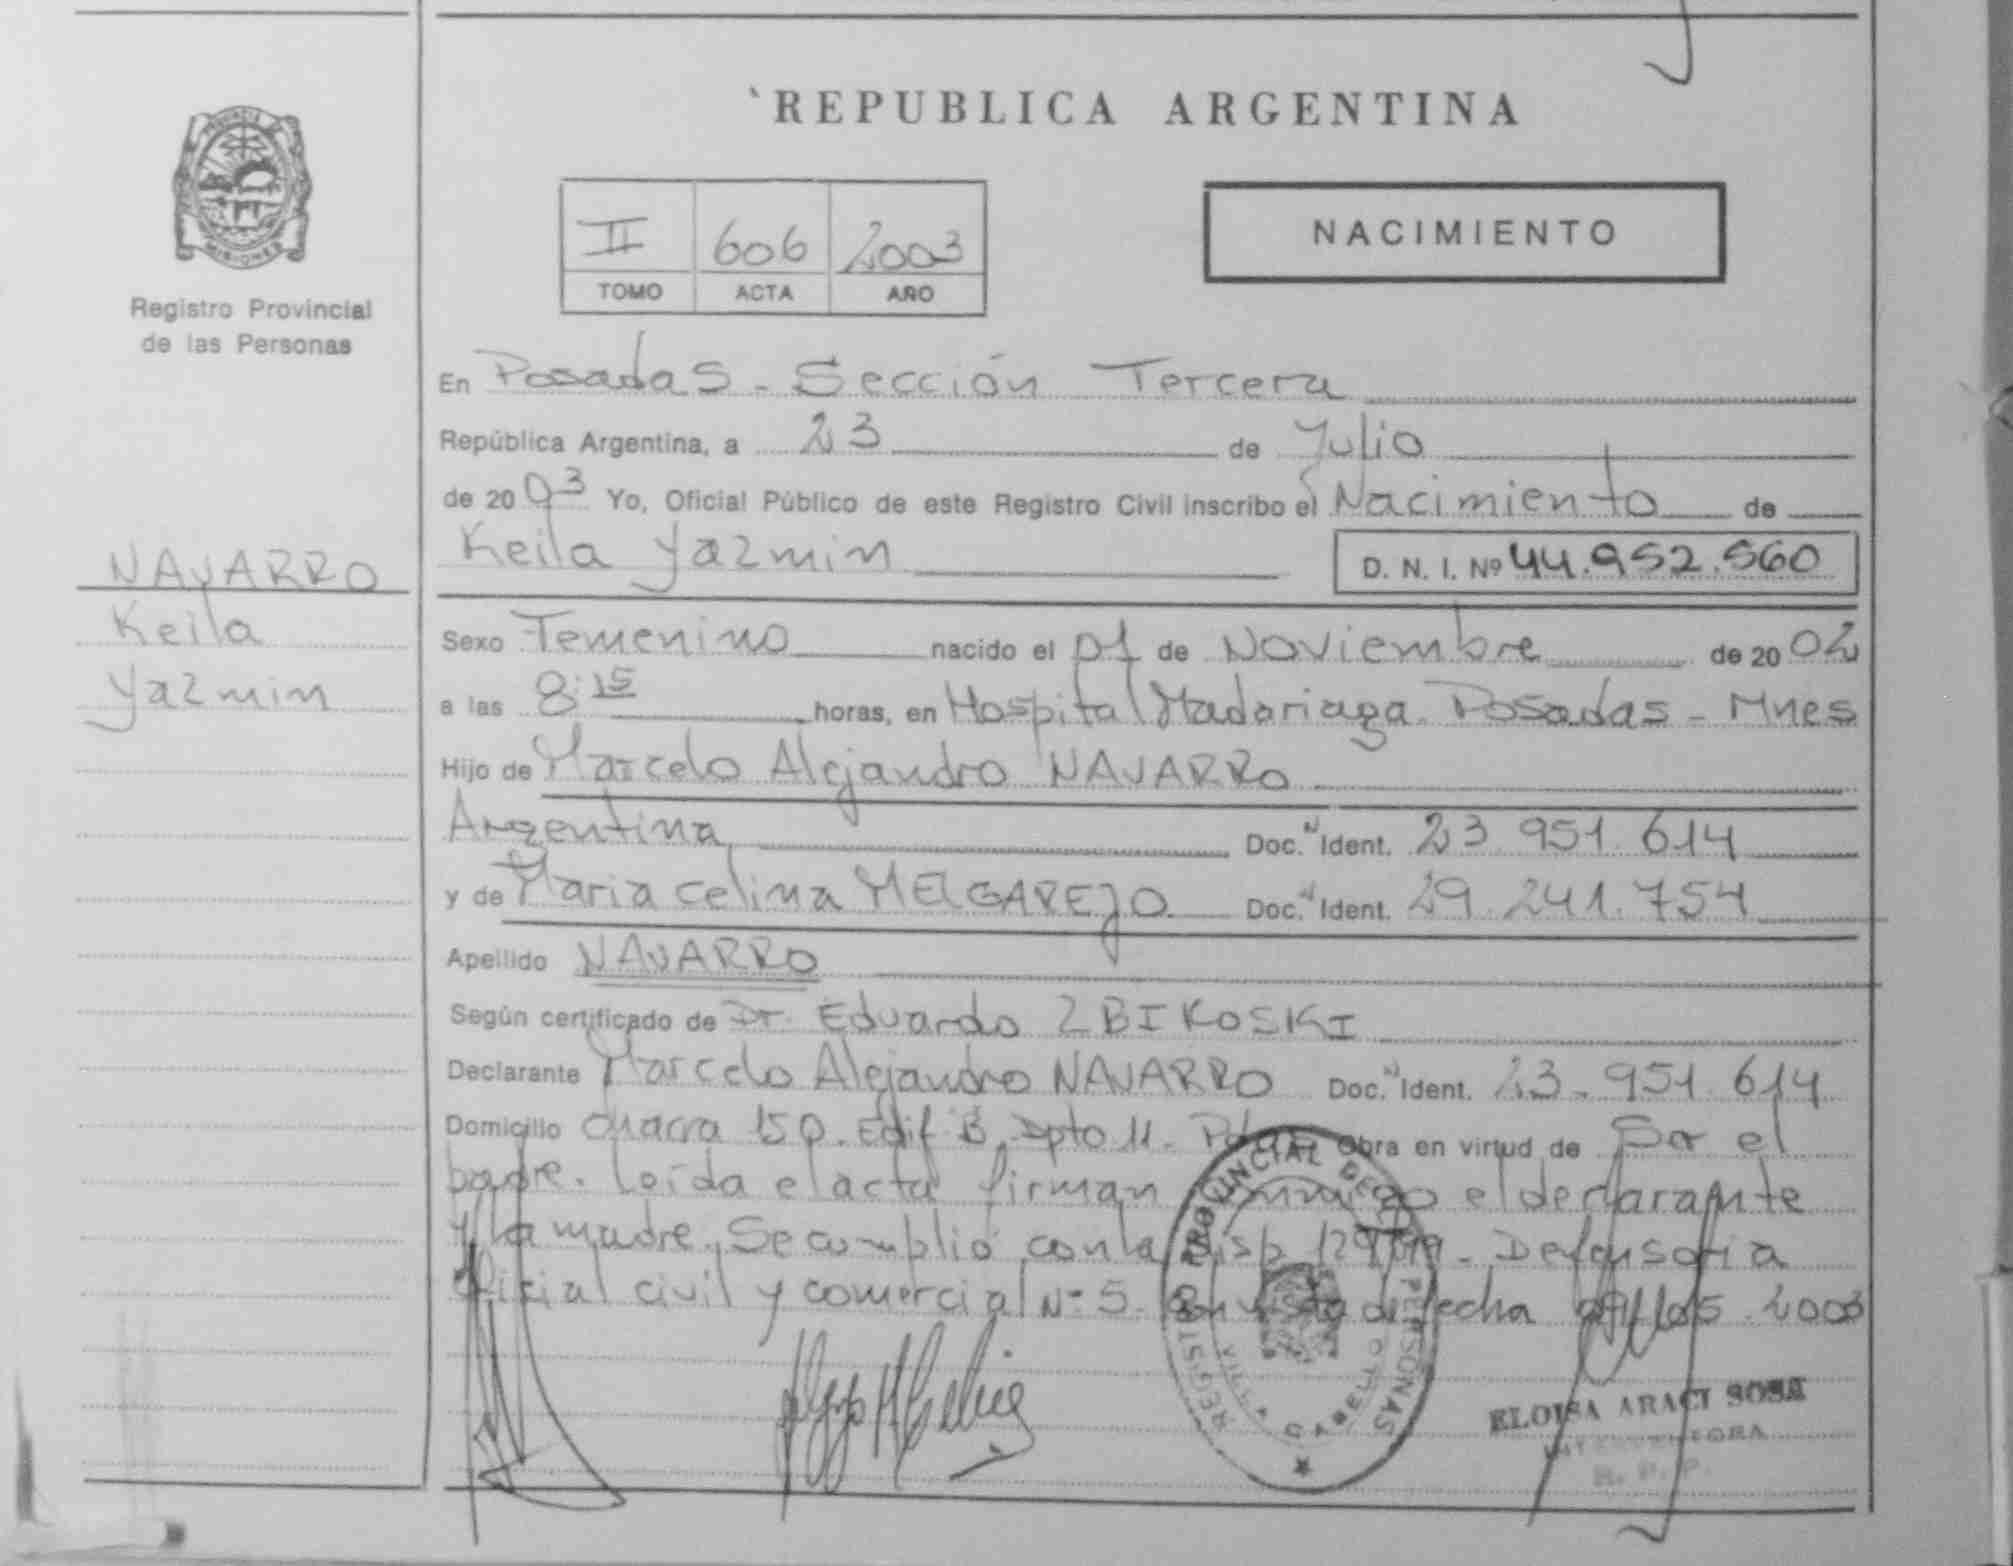 PROVINCIA DE
MISIONES
Registro Provincial
de las Personas
NAVARRO
Keila
Yazmin
REPUBLICA ARGENTINA
II 606 2003
TOMO ACTA AÑO
NACIMIENTO
En Posadas - Sección Tercera
República Argentina, a 23 de Julio
de 2003 Yo, Oficial Público de este Registro Civil inscribo el Nacimiento de
Keila Yazmin D. N. I. Nº 44.952.560
Sexo Femenino nacido el 01 de Noviembre de 2002
a las 8:15 horas, en Hospital Madariaga. Posadas - Mnes
Hijo de Marcelo Alejandro NAVARRO
Argentina Doc. N Ident. 23.951.614
y de Maria Celina MELGAREJO Doc. N Ident. 29.241.754
Apellido NAVARRO
Según certificado de Dr. Eduardo ZBIKOSKI
Declarante Marcelo Alejandro NAVARRO Doc. N Ident. 23.951.614
Domicilio Chacra 150. Edif B. Dpto 11. Pdas Obra en virtud de Ser el
padre. Leída el acta firman conmigo el declarante
y la madre. Se cumplió con la Disp 129/99 - Defensoría
Oficial civil y comercial Nº 5. de fecha 2003
REGISTRO PROVINCIAL DE LAS PERSONAS
VILLA CABELLO
ELOISA ARACI SOSA
INTERVENTORA
R. P. P.